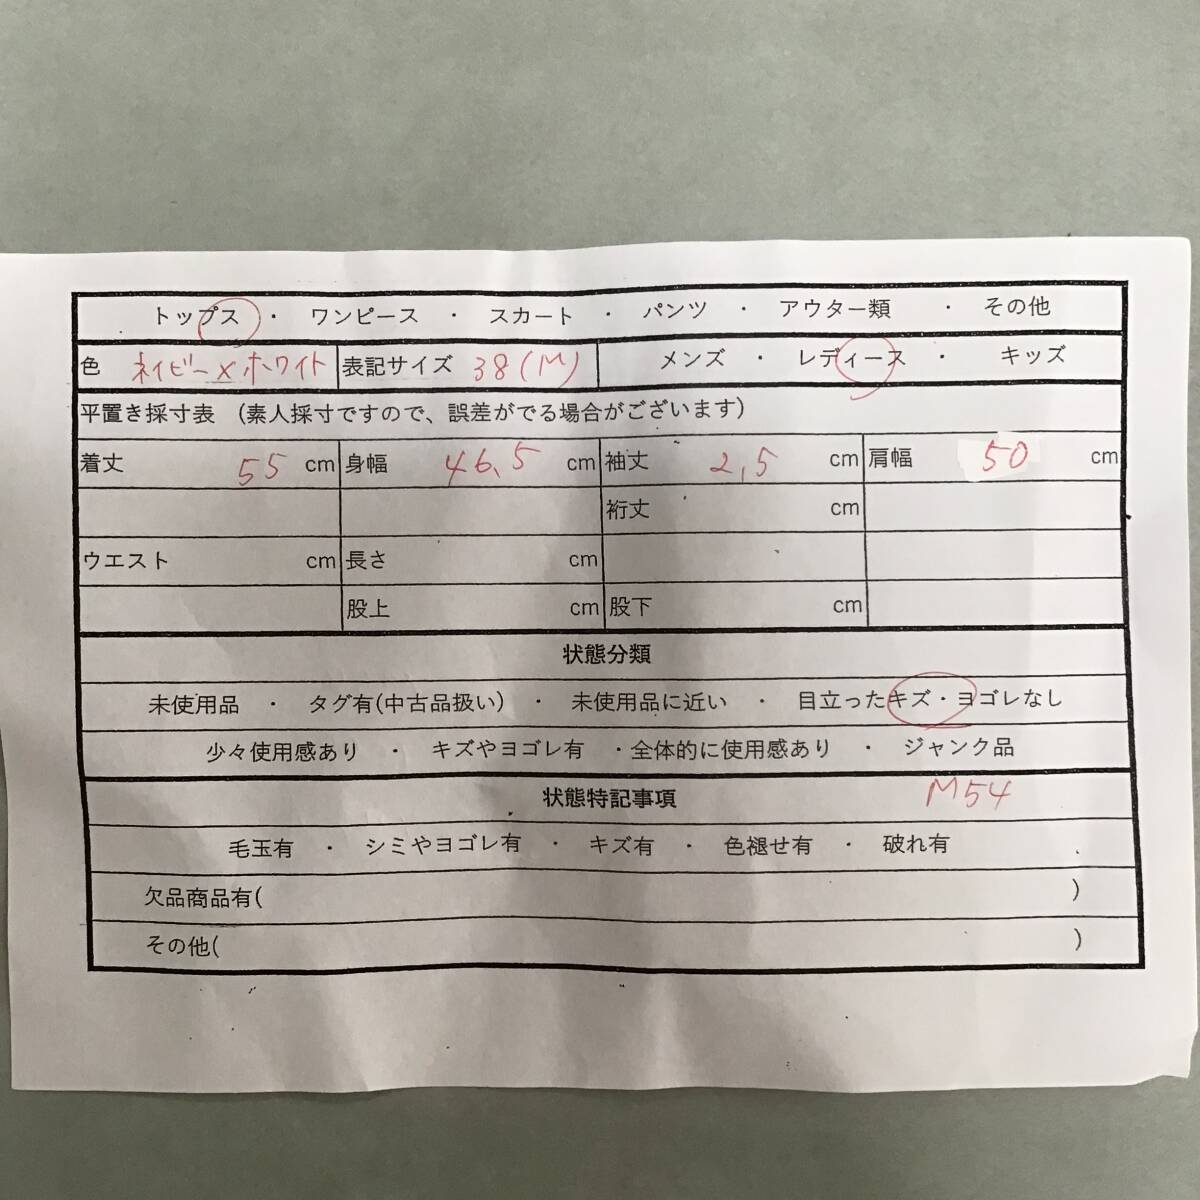 トップス ・ ワンピース ・ スカート ・ パンツ ・ アウター類 ・ その他
色 ネイビー×ホワイト 表記サイズ 38(M) メンズ ・ レディース ・ キッズ
平置き採寸表 (素人採寸ですので、誤差がでる場合がございます)
着丈 55 cm 身幅 46.5 cm 袖丈 2.5 cm 肩幅 50 cm
裄丈 cm
ウエスト cm 長さ cm
股上 cm 股下 cm
状態分類
未使用品 ・ タグ有(中古品扱い) ・ 未使用品に近い ・ 目立ったキズ・ヨゴレなし
少々使用感あり ・ キズやヨゴレ有 ・全体的に使用感あり ・ ジャンク品
状態特記事項 M54
毛玉有 ・ シミやヨゴレ有 ・ キズ有 ・ 色褪せ有 ・ 破れ有
欠品商品有( )
その他( )